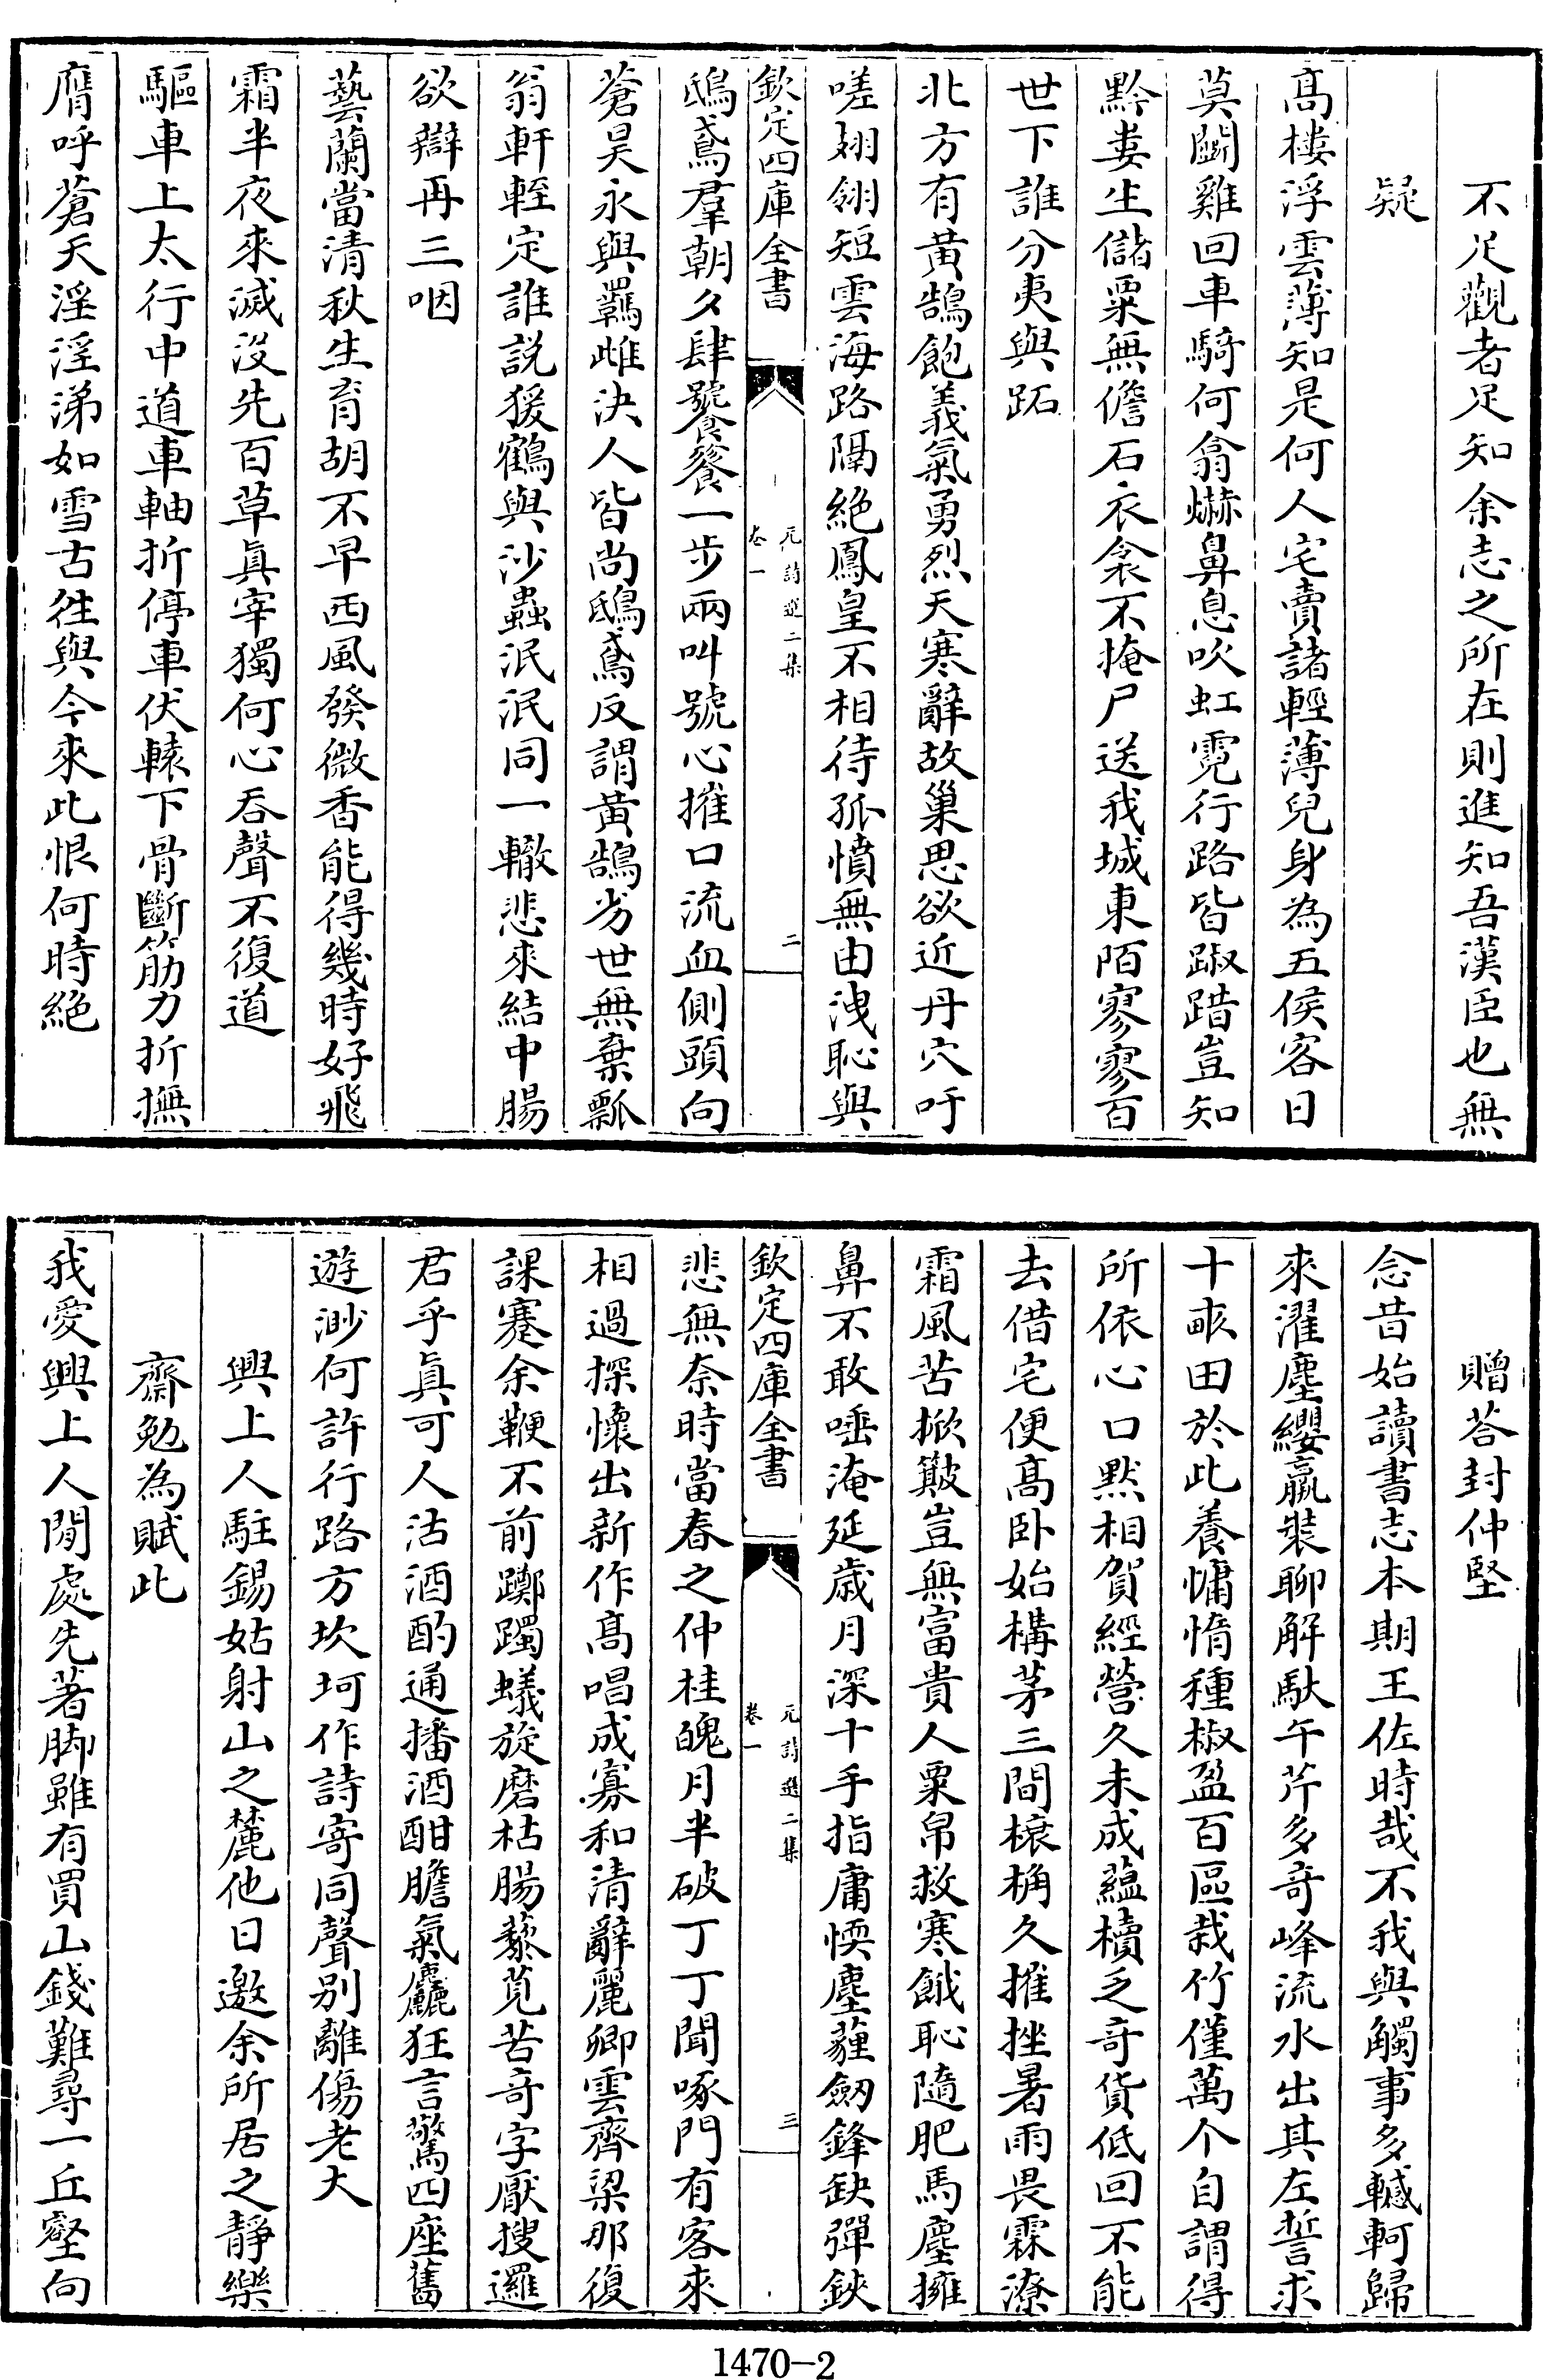 不足觀者足知余志之所在則進知吾漢臣也無
疑
髙樓浮雲薄知是何人宅賣諸輕薄兒身為五侯客日
莫鬭雞回車騎何翕爀鼻息吹虹霓行路皆踧踖豈知
黔婁生儲粟無儋石衣衾不掩尸送我城東陌寥寥百
世下誰分夷與跖
北方有黄鵠飽義氣勇烈天寒辭故巢思欲近丹穴吁
嗟翅翎短雲海路隔絶鳳皇不相待孤憤無由洩恥與
欽定四庫全書
元詩選二集
卷一
二
鴟鳶羣朝夕肆饕餮一步兩叫號心摧口流血側頭向
蒼昊永與羈雌決人皆尚鴟鳶反謂黄鵠劣世無棄瓢
翁軒輊定誰説猨鶴與沙蟲泯泯同一轍悲來結中腸
欲辯再三咽
藝蘭當清秋生育胡不早西風發微香能得幾時好飛
霜半夜來滅没先百草眞宰獨何心吞聲不復道
驅車上太行中道車軸折停車伏轅下骨斷筋力折撫
膺呼蒼天淫淫涕如雪古徃與今來此恨何時絶
贈荅封仲堅
念昔始讀書志本期王佐時哉不我與觸事多轗軻歸
來濯塵纓羸裝聊解馱午芹多竒峰流水出其左誓求
十畝田於此養慵惰種椒盈百區栽竹僅萬个自謂得
所依心口黙相賀經營久未成藴櫝乏竒貨低回不能
去借宅便髙卧始構茅三間榱桷久摧挫暑雨畏霖潦
霜風苦掀簸豈無富貴人粟帛救寒餓恥隨肥馬塵擁
鼻不敢唾淹延歲月深十手指庸愞塵蕹劒鋒缺彈鋏
欽定四庫全書
元詩選二集
卷一
三
悲無奈時當春之仲桂魄月半破丁丁聞啄門有客來
相過探懷出新作髙唱成寡和清辭麗卿雲齊梁那復
課蹇余鞭不前躑躅蟻旋磨枯腸藜莧苦竒字厭搜邏
君乎眞可人沽酒酌通播酒酣膽氣麤狂言驚四座舊
遊渺何許行路方坎坷作詩寄同聲别離傷老大
興上人駐錫姑射山之麓他日邀余所居之静樂
齋勉為賦此
我愛興上人閒處先著脚雖有買山錢難尋一丘壑向
1470-2